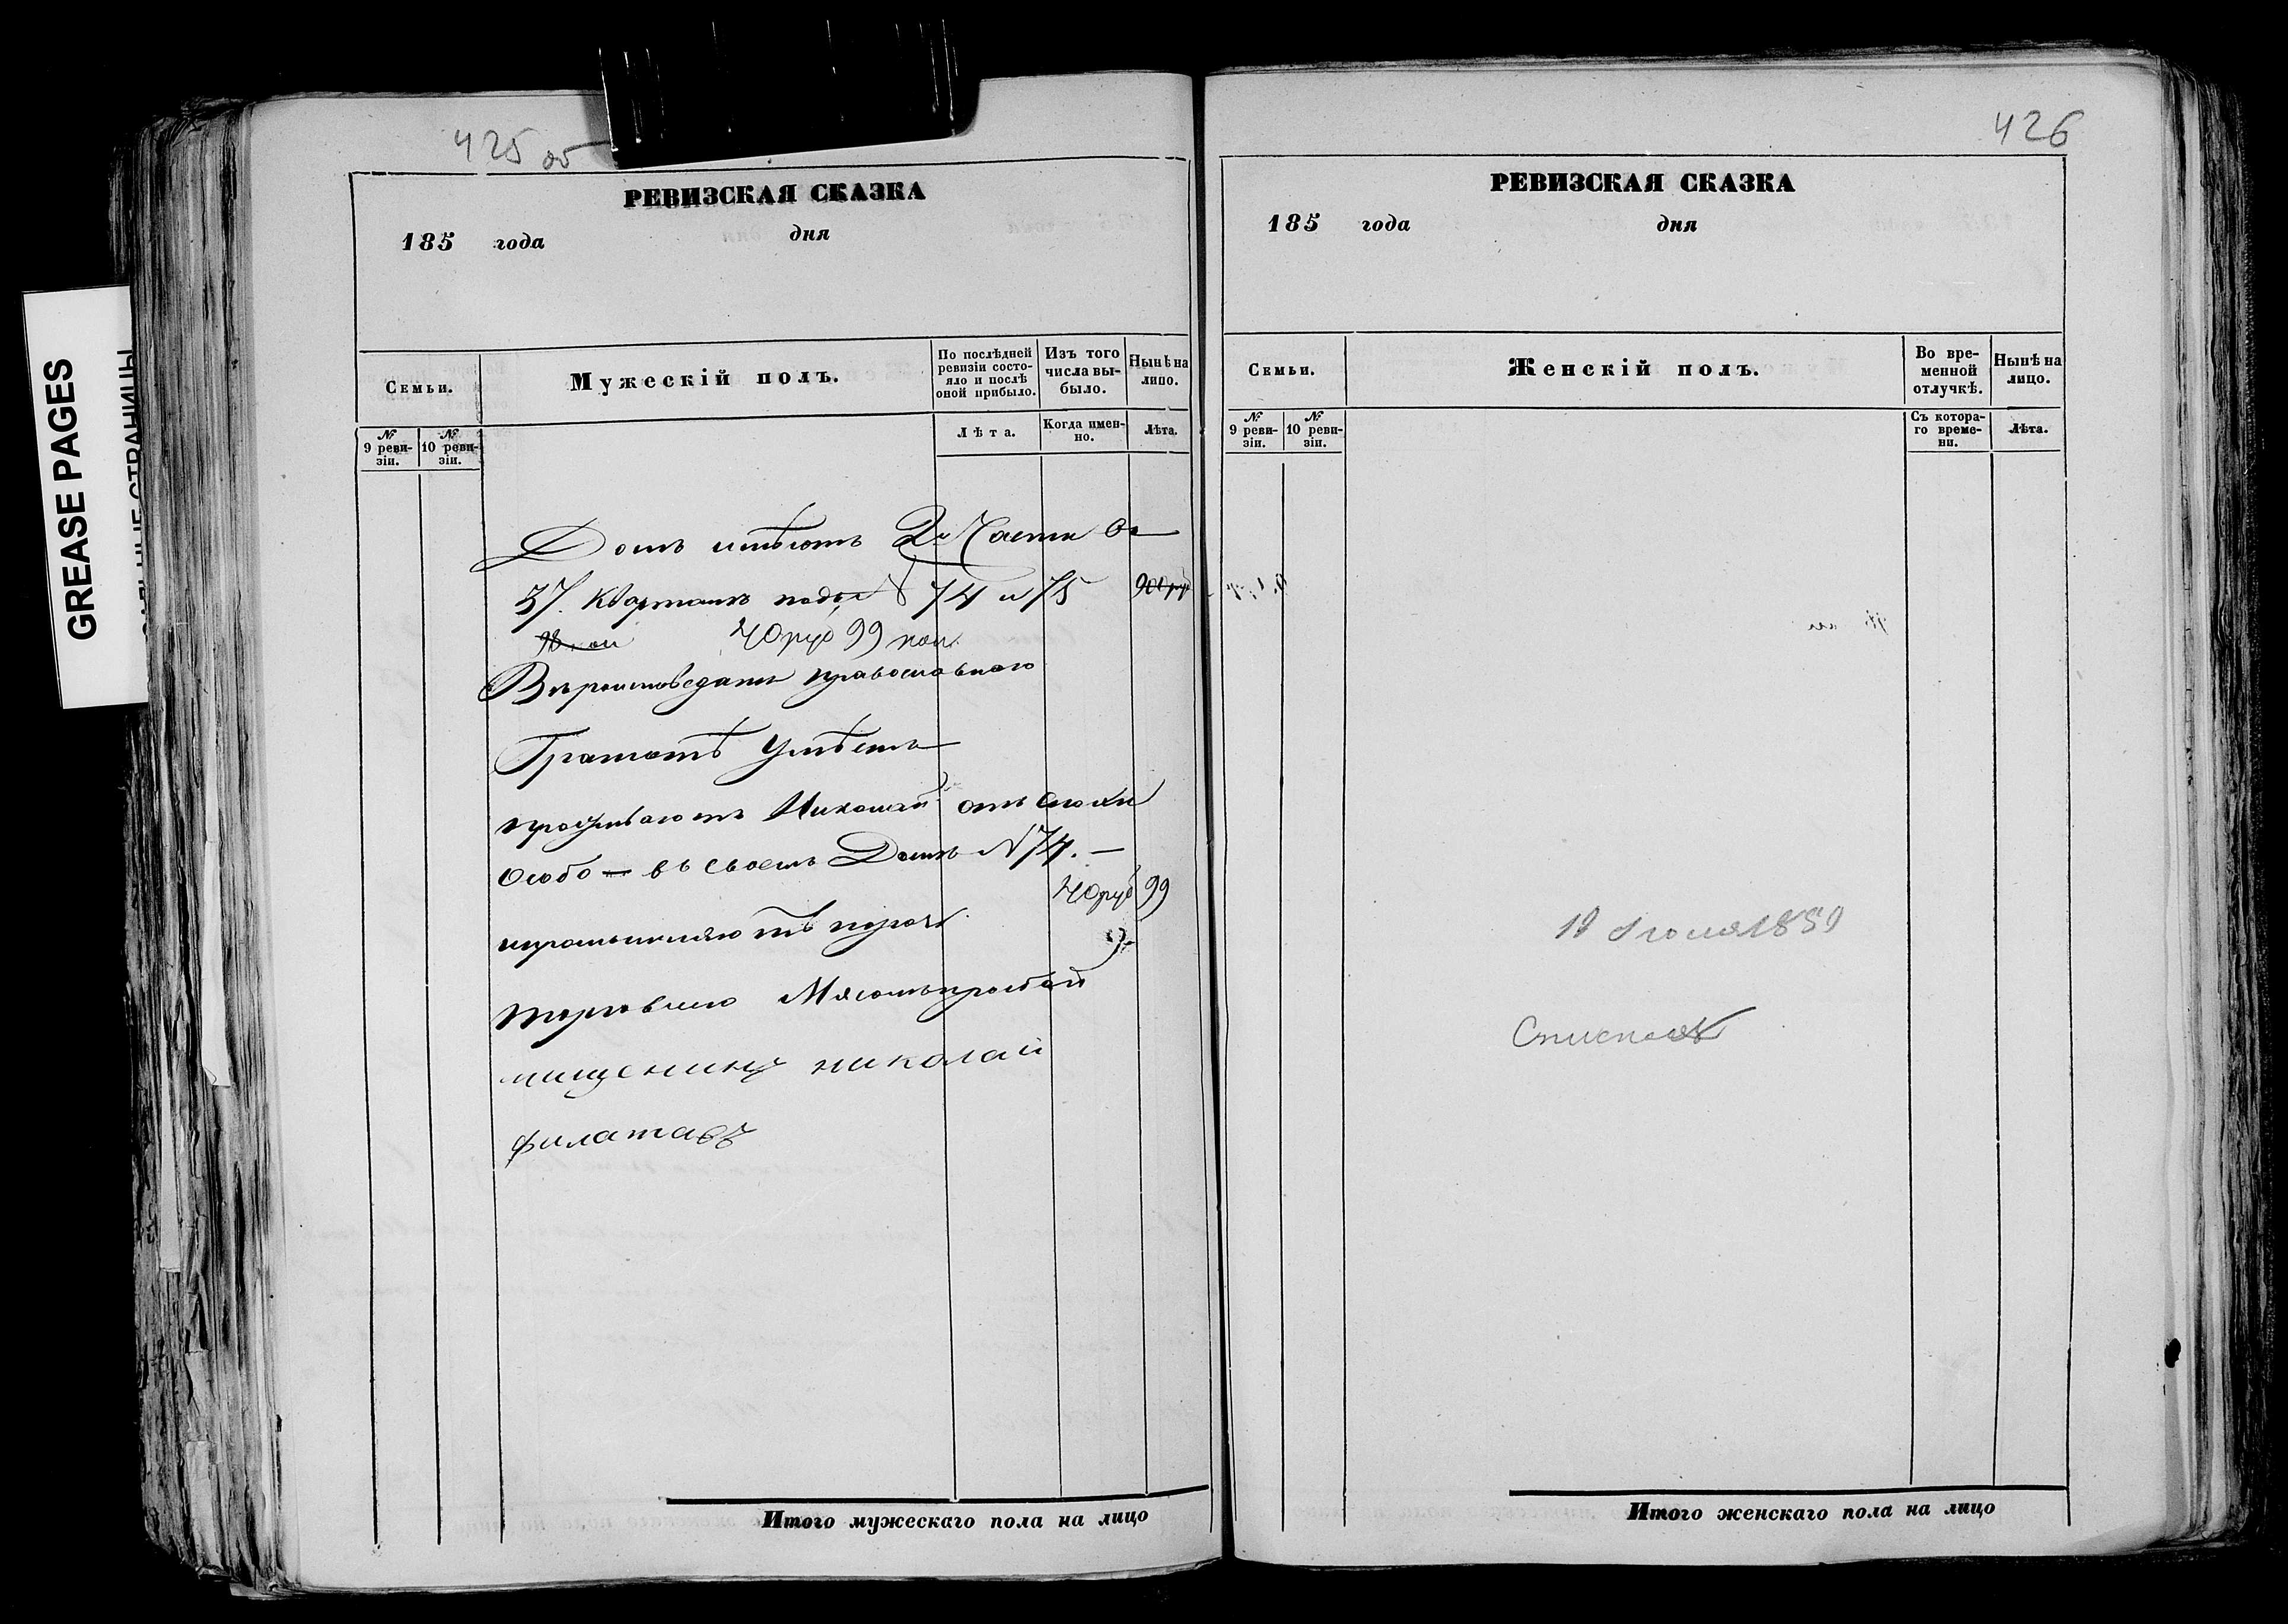 425 об
РЕВИЗСКАЯ СКАЗКА
185 года дня
Семьи.
Мужескій полъ.
По послѣдней ревизіи состояло и послѣ оной прибыло.
Изъ того числа выбыло.
Нынѣ на лицо.
№ 9 ревизіи.
№ 10 ревизіи.
Лѣта.
Когда именно.
Лѣта.
Домъ имѣютъ 2й Части въ
37. Квартали подъ № 74 и 75
40 руб 99 коп
Вѣроисповеданія православнаго
Грамотѣ Умѣетъ
проживаютъ Николай отъ
Особо – въ своемъ Доми № 74. –
40 руб 99
торговлею Мясомъ
мищенинъ николай
филатавъ
Итого мужескаго пола на лицо
426
РЕВИЗСКАЯ СКАЗКА
185 года дня
Семьи.
Женскій полъ.
Во временной отлучкѣ.
Нынѣ на лицо.
№ 9 ревизіи.
№ 10 ревизіи.
Съ котораго времени.
Лѣта.
Итого женскаго пола на лицо
GREASE PAGES